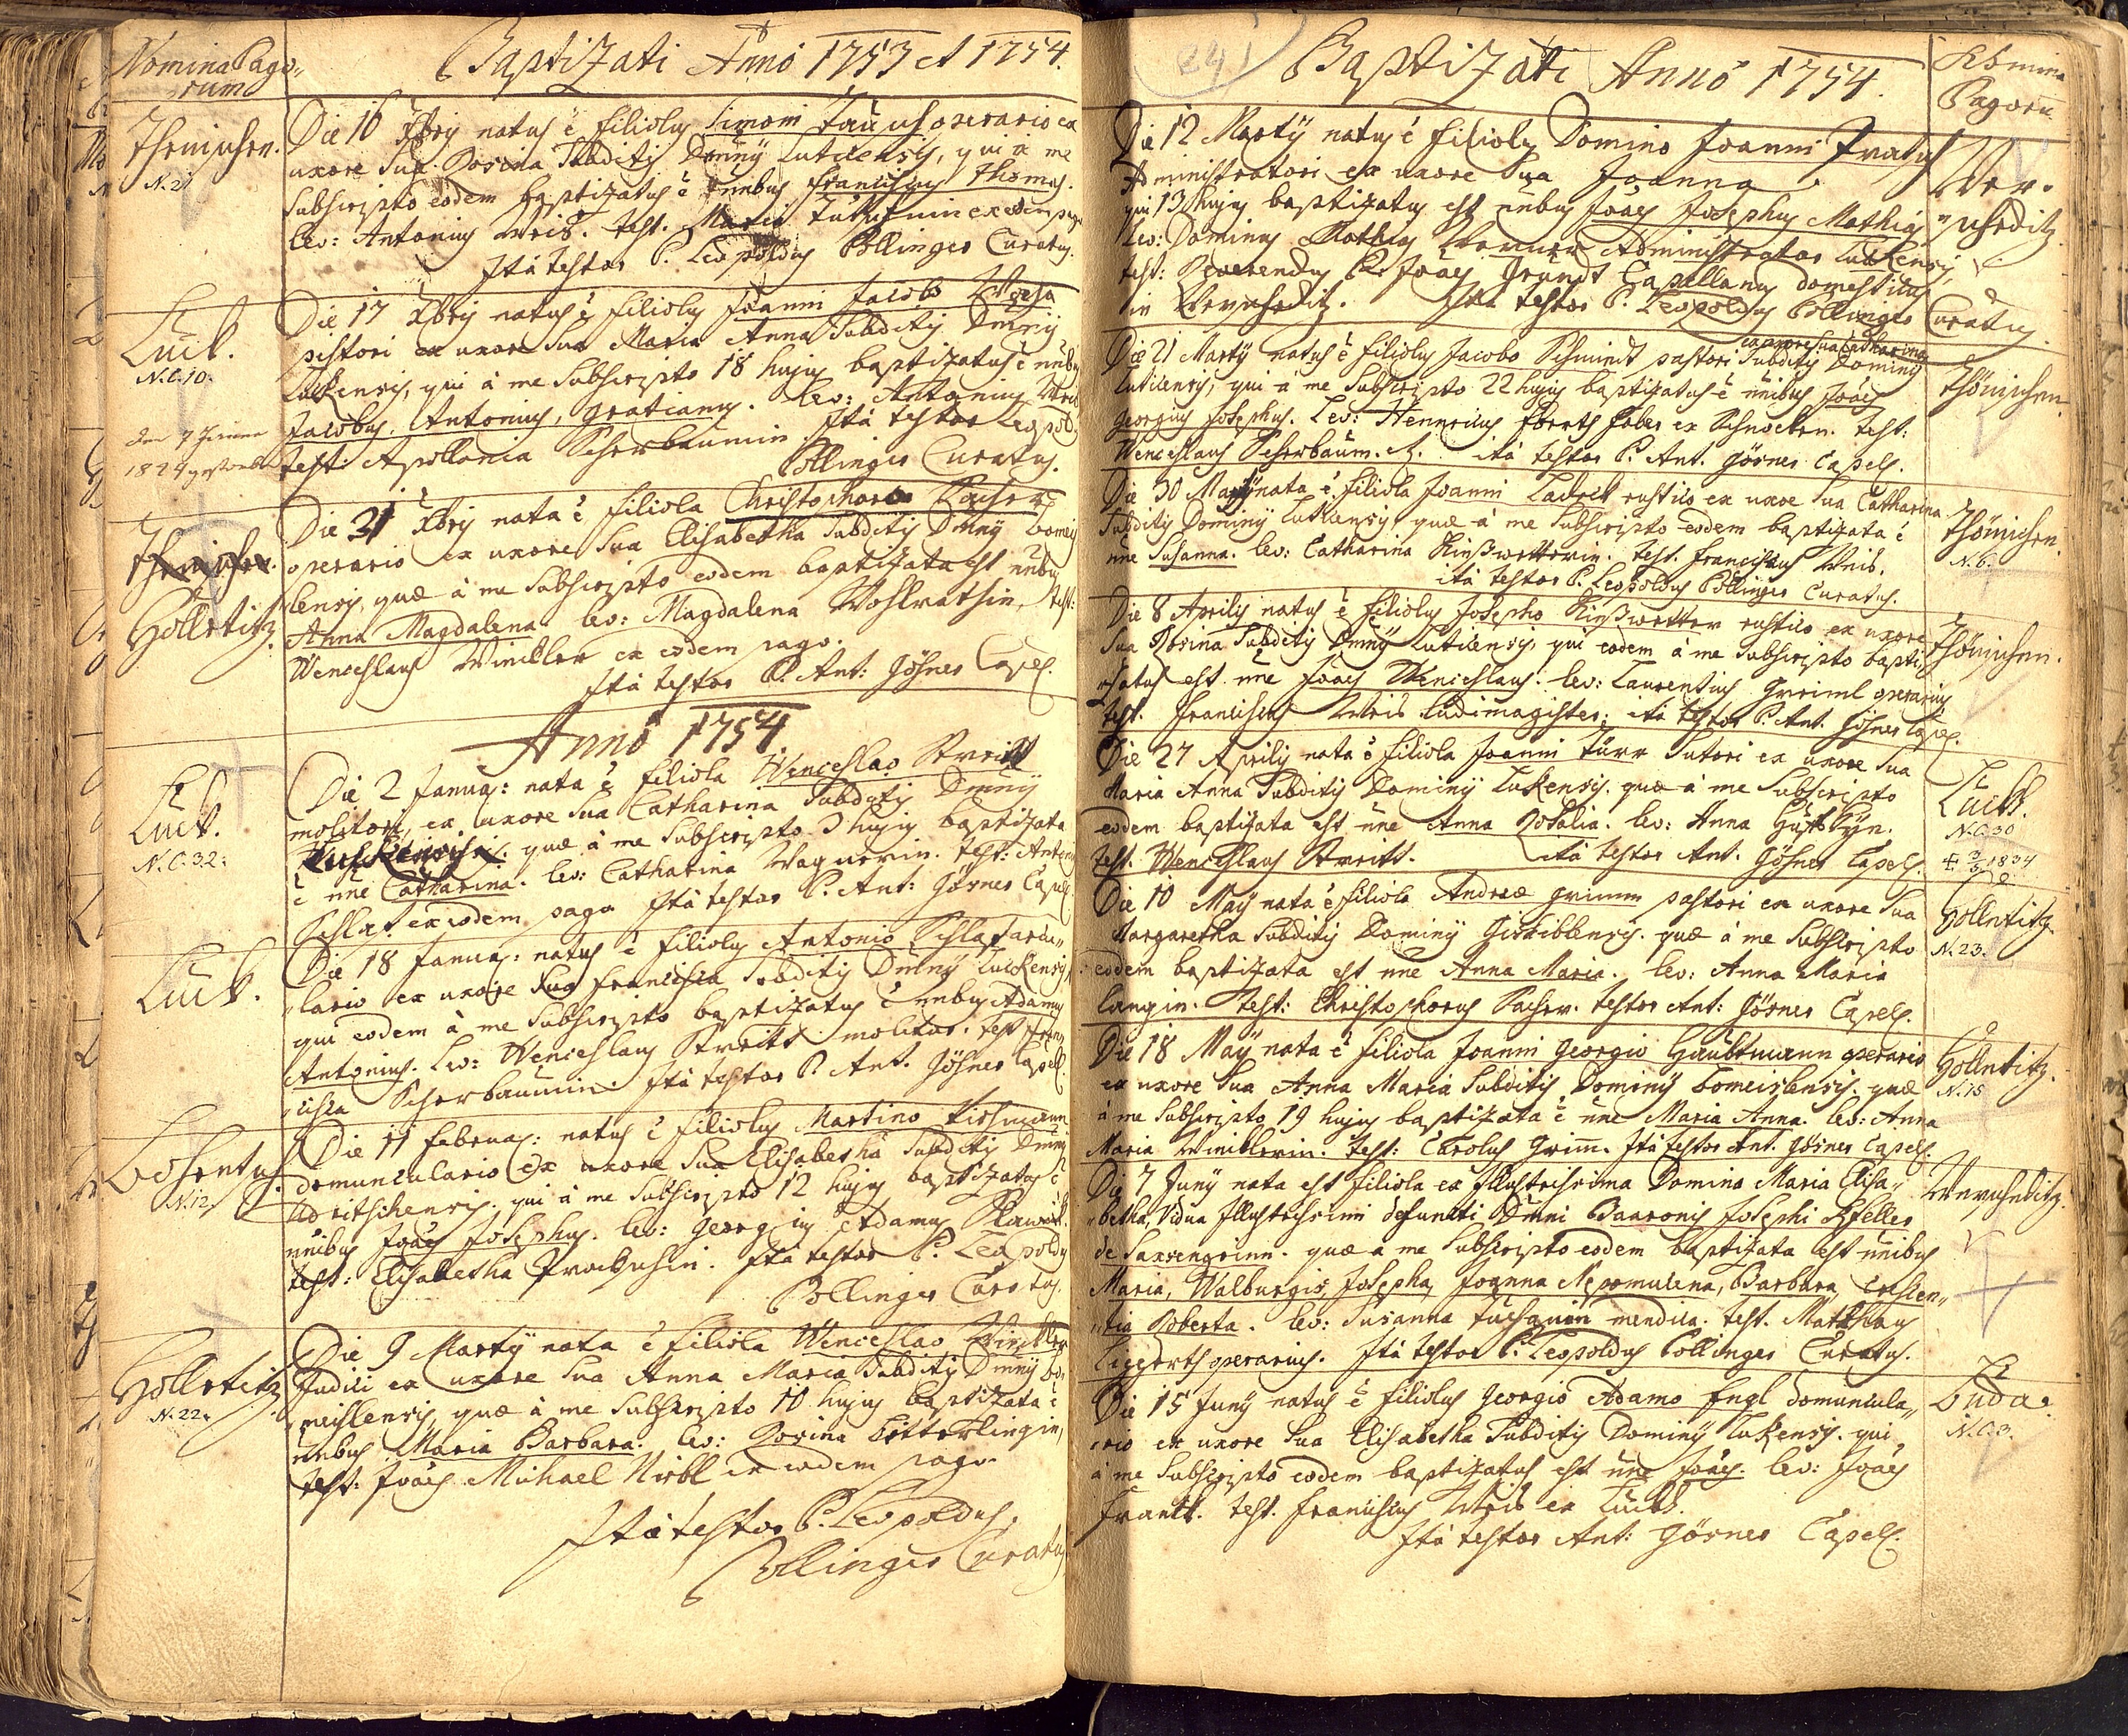 Nomina Pago„
rum
Baptizati Anno 1753 et 1754.
Thönischen.
N. 21
Die 16 Xbris natus ẽ filiolus Simoni operario ex
uxore sua Rosina Subditis Dminÿ Luticensis, qui à me
Subscripto eodem baptizatus ẽ nnibus Franciscus Thomas.
lev: Antonius Weis. test. Maria ex eodem pago
Ità testor P. Leopoldus Pollinger Curatus.
Luck.
N.C. 10.
1824 gestorben
Die 17 Xbris natus ẽ filiolus Joanni Jacobo
pistori ex uxore sua Maria Anna Subditis Dminÿ
Lukensis, qui à me Subscripto 18 hujus baptizatus ẽ nnibus
Jacobus, Antonius, Gratianus. lev: Antonius Weis
test: Apollonia Scherbaumin. Ità testor Leopold.
Pollinger Curatus.
Gollotitz.
Die 31 Xbris nata ẽ filiola Christophoro Pacher
operario ex uxore sua Elisabetha Subditis Dminÿ Domeis
lensis, quæ à me Subscripto eodem baptizata est nnibus
Anna Magdalena. lev: Magdalena Wohlrathin, test:
Wenceslaus Winckler ex eodem pago.
Ità testor P. Ant: Gösner Capell.
Anno 1754
Luck.
N.C. 32.
Die 2 Janua: nata ẽ filiola Wenceslao Streitt
molitori, ex uxore sua Catharina Subditis Dminÿ
quæ à me Subscripto 3 hujus baptizata
ẽ nne Catharina. lev: Catharina Wagnerin. test: Anton
Schlaf ex eodem pago Ità testor P. Ant: Gösner Capell.
Luck.
Die 18 Janua: natus ẽ filiolus Antonio Schlaf areu„
„lario ex uxore sua Francisca Subditis Dminÿ Luckensis,
qui eodem à me Subscripto baptizatus ẽ nnibus Adamus
Antonius. Lev: Wenceslaus Streitt molitor. test Fran„
„cisca Scherbaumin. Ità testor P. Ant. Gösner Capell.
N. 12
Die 11 Februa: natus ẽ filiolus Martino
domunculario ex uxore sua Elisabetha Subditis Dminÿ
Udritschensis. qui à me Subscripto 12 hujus baptizatus ẽ
nnibus Joães Josephus. lev: Georgius Adamus
test: Elisabetha Ità testor P. Leopoldus
Pollinger Curatus.
Gollotitz
N. 22.
Die 9 Martÿ nata ẽ filiola Wenceslao Winckler
Judici ex uxore sua Anna Maria Subditis Dminÿ Do„
„meislensis, quæ à me Subscripto 10 hujus baptizata ẽ
nnibus Maria Barbara. lev: Rosina
test: Joães Michael ex eodem pago.
Ità testor P. Leopoldus
Pollinger Curatus
241
Baptizati Anno 1754.
Nomina
Pagoru
Wer„
„scheditz
Die 12 Martÿ natus ẽ filiolus Domino Joanni
Administratori ex uxore sua Joanna
qui 13 hujus baptizatus est nnibus Joães Josephus Mathias
Lev: Dominus Mathias Administrator Luckensis,
test: Reverendus P. Joães Grundt Capellanus domesticus
in Werscheditz. Ità testor P. Leopoldus Pollinger Curatus.
Thönischen
ex uxore sua Catharina
Die 21 Martÿ natus ẽ filiolus Jacobo Schmidt pastori Subditis Dominÿ
Luticensis, qui à me Subscripto 22 hujus baptizatus ẽ nnibus Joães
Georgius Josephus. Lev: Henricus Faber ex test:
Wenceslaus Scherbaum. ità testor P. Ant. Gösner Capell.
Thönischen.
N. 6.
Die 30 Martÿ nata ẽ filiola Joanni rustico ex uxore sua Catharina
Subditis Dominÿ Luticensis, quæ à me Subscripto eodem baptizata ẽ
nne Susanna. lev: Catharina Hinßwetterin. test. Franciscus Weis.
ità testor P. Leopoldus Pollinger Curatus.
Thönischen.
Die 8 Aprilis natus ẽ filiolus Josepho Hinßwetter rustico ex uxore
sua Rosina Subditis Dminÿ Luticensis, qui eodem à me Subscripto bapti„
„zatus est nne Joães Wenceslaus. lev: Laurentius Greiml operarius
test. Franciscus Weis ludimagister; ità testor P. Ant. Gösner Capell.
Luck.
N.C. 30
1834
Die 27 Aprilis nata ẽ filiola Joanni Türr Sutori ex uxore sua
Maria Anna Subditis Dominÿ Lukensis. quæ à me Subscripto
eodem baptizata est nne Anna Rosalia. lev: Anna
test. Wenceslaus Streitt. ità testor Ant. Gösner Capell.
Gollotitz
N. 23.
Die 10 Maÿ nata ẽ filiola Andreæ Grimm pastori ex uxore sua
Margaretha Subditis Dominÿ Gieshiblensis. quæ à me Subscripto
eodem baptizata est nne Anna Maria. lev: Anna Maria
Langin. test: Christophorus Pacher. testor Ant: Gösner Capell.
Gollotitz.
N. 15
Die 18 Maÿ nata ẽ filiola Joanni Georgio Haubtmann operario
ex uxore sua Anna Maria Subditis Dominÿ Domeislensis. quæ
à me Subscripto 19 hujus baptizata ẽ nne Maria Anna. lev: Anna
Maria Wincklerin. test: Carolus Grim. Ità testor Ant. Gösner Capell.
Werscheditz.
Die 7 Junÿ nata est filiola ex Illustrissima Domina Maria Elisa„
„betha, Vidua Illustrissimi defuncti Dmni Baaronis Josephi
de Saxengrinn. quæ à me Subscripto eodem baptizata est nnibus
Maria, Walburgis, Josepha, Joanna Nepomucena, Barbara,
Roberta. lev: Susanna mendica. test. Matthæus
operarius. Ità testor P. Leopoldus Pollinger Curatus.
Buda.
N.C. 3.
Die 15 Junÿ natus ẽ filiolus Georgio Adamo Engl domuncula„
„rio ex uxore sua Elisabetha Subditis Dominÿ Lukensis. qui
à me Subscripto eodem baptizatus est nne Joães. lev: Joães
Franck. test. Franciscus Weis ex Luck.
Ità testor Ant: Gösner Capell.